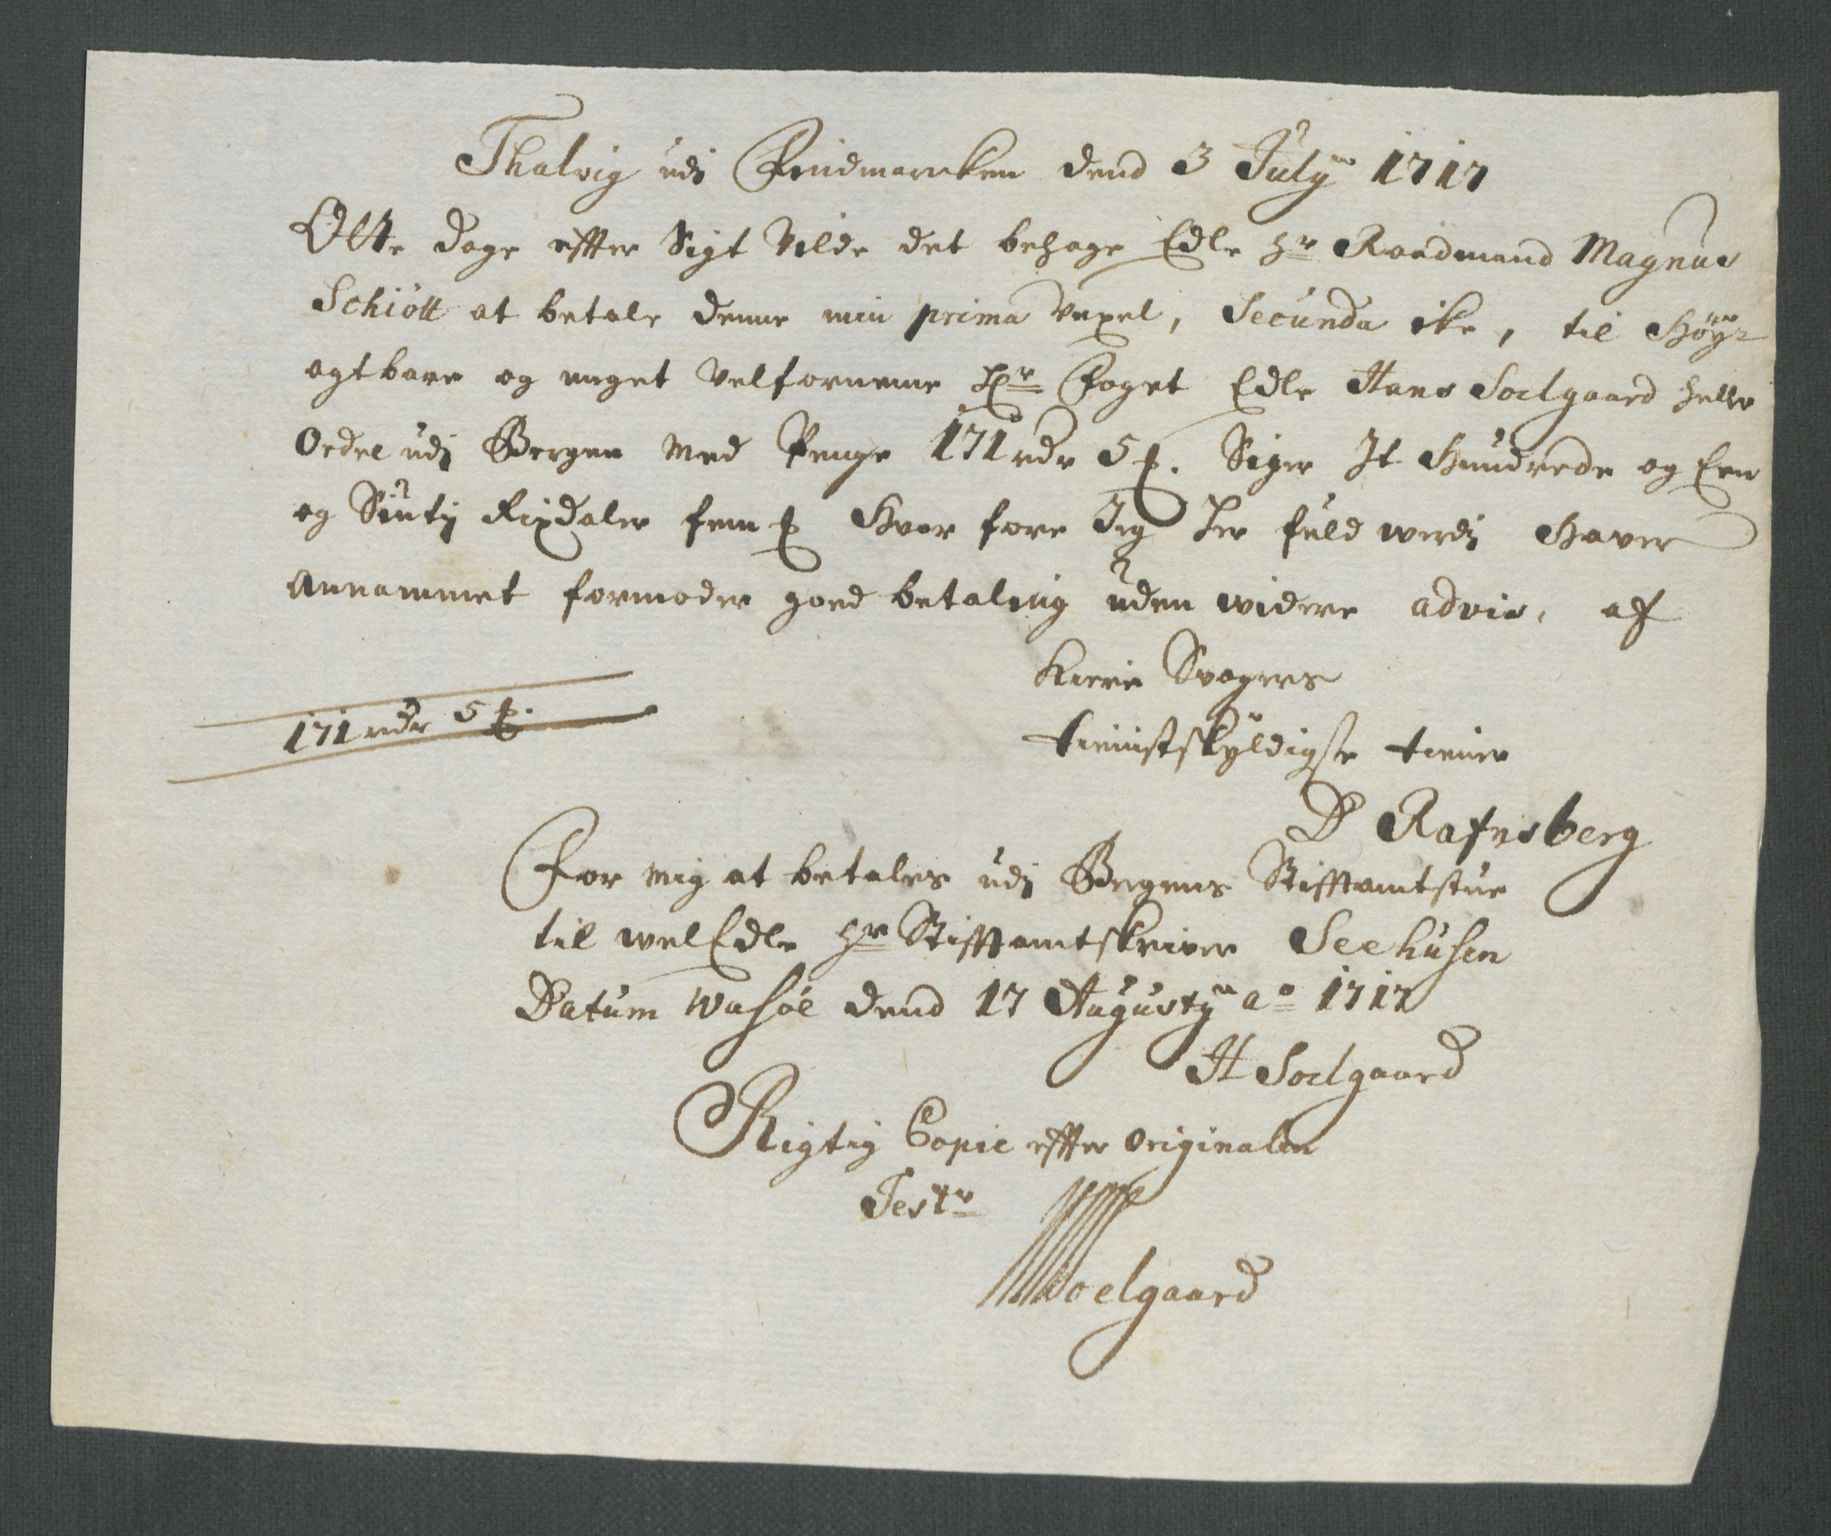 Thalvig udj Findmarcken dend 3 July 1717
Otte dage effter Sigt Vilde det behage Edle hr Raadmand Magnus
Schiött at betale denne min prima Vexel, Secunda ike, til Höy-
agtbare og meget Velfornemme Hr Foget Edle Hans Soelgaard heller
Ordre udj Bergen med Penge 171 rdr 5 ß. Siger Et Hundrede og Een
og Siuty Rixdaler fem ß Hvor fore Jeg her fuld werdj Haver
Annammet formoder goed betaling uden widere advis, af
Kiere Svogers
171 rdr 5 ß.
tienistskyldigste tiener
D Rafnsberg
For mig at betales udj Bergens Stifftamtstue
til welEdle hr Stifftamtskriver Seehusen
Datum Wasöe dend 17 Augusty ao 1717
H Soelgaard
Rigtig Copie effter Originalen
Tester
HSoelgaard